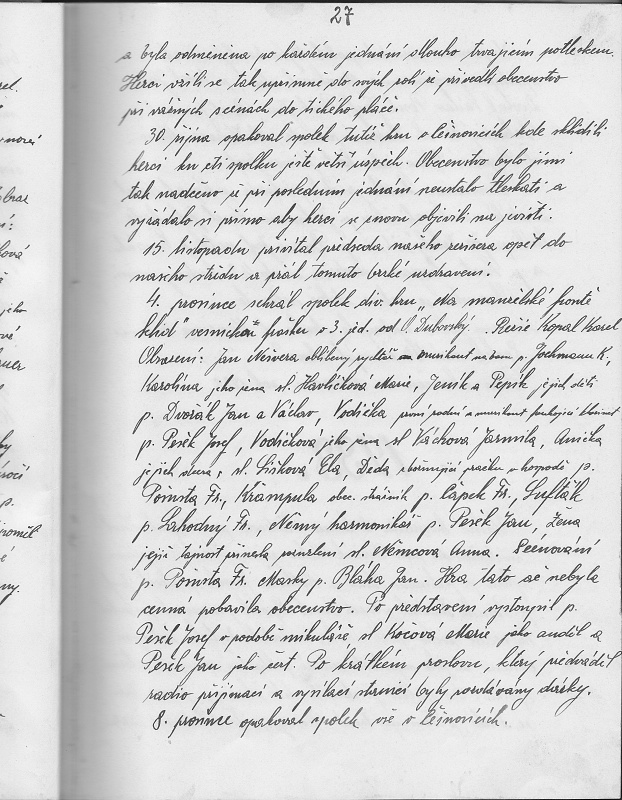 27
a byla odměněna po každém jednání dlouho trvajícím potleskem.
Herci vžili se tak upřímně do svých rolí že přivedli obecenstvo
při vážných scénách do tichého pláče.
30. října opakoval spolek tutéž hru v Lešnovicích kde sklidili
herci ku cti spolku ještě větší úspěch. Obecenstvo bylo jimi
tak nadšeno že při posledním jednání neustalo tleskati a
vyžádalo si přímo aby herci se znovu objevili na jevišti.
15. listopadu přivítal předseda našeho režisera opět do
našeho středu a přál tomuto brzké uzdravení.
4. prosince sehrál spolek div. hru „Na manželské frontě
klid" vesnická fraška o 3. jed. od O. Dubovský. Režie Kopal Karel
Obsazení: Jan Nejvera oblíbený rychtář a muzikant p. Jochmann K.,
Karolína jeho žena sl. Havlíčková Marie, Jeník a Pepík jejich děti
p. Dvořák Jan a Václav, Vodička první radní a muzikant
p. Pešek Josef, Vodičková jeho žena sl. Váchová Jarmila, Anička
jejich dcera, sl. Lišková Ela, Děda v hospodě p.
Pojmsta Fr., Krampula obec. strážník p. Čápek Fr., Lufták
p. Lahodný Fr., Němý harmonikář p. Pešek Jan, Žena
jejíž tajnost přinesla pozurlení sl. Němcová Anna. Scénování
p. Pojmsta Fr. Masky p. Bláha Jan. Hra tato ač nebyla
cenna pobavila obecenstvo. Po představení vystoupil p.
Pešek Josef v podobě mikuláše sl. Kočová Marie jako anděl a
Pešek Jan jako čert. Po krátkém proslovu, který předváděl
radio přijímací a vysílací stanicí byly rozdávány dárky.
8. prosince opakoval spolek vše v Lešnovicích.